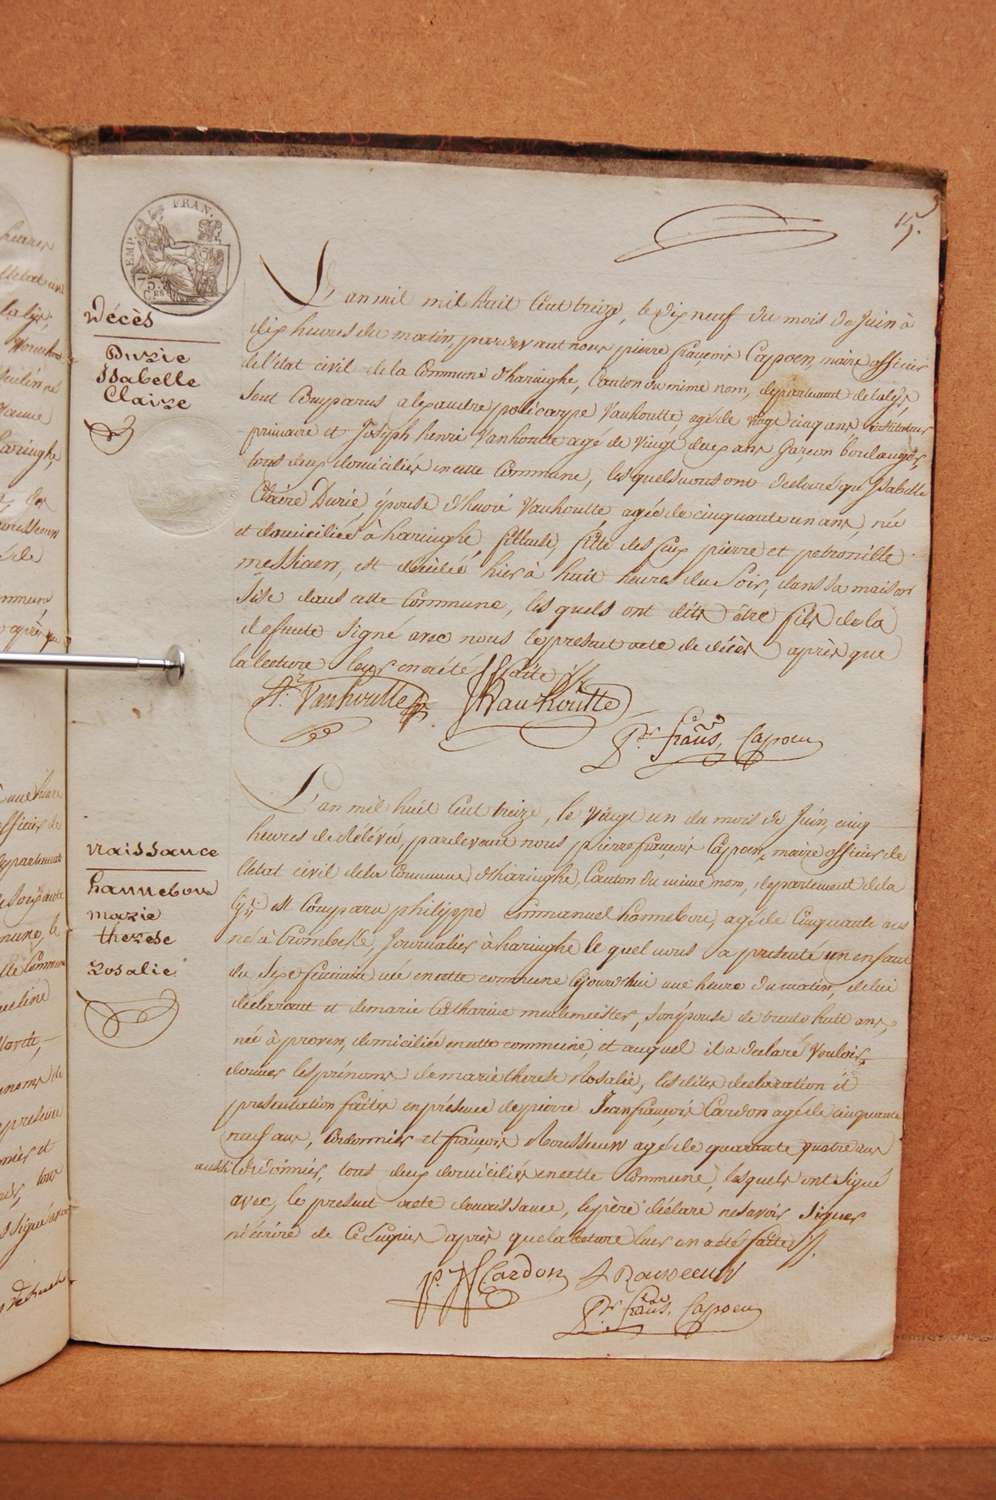 15.
EMP. FRAN.
75.
Cen
Décès
Durie
Isabelle
Claire
L'an mil mil huit Cent treize, le dix neuf du mois de Juin à
dix heures du matin, pardevant nous pierre françois Cappoen, maire officier
de l'état civil de la Commune d'haringhe, Canton du même nom, département de la lys
sont Comparus alexandre policarpe Vanhoutte, agé de vingt cinq ans instituteur
primaire et Joseph henri Vanhoutte agé de vingt deux ans Garçon boulanger,
tous deux domiciliés en cette Commune, les quels nous ont declaré que Isabelle
Claire Durie épouse d'henri Vanhoutte agée de cinquante un ans, née
et domiciliée à haringhe fileuse, fille des feux pierre et petronille
messiaen, est decédée hier à huit heures du soir, dans sa maison
sise dans cette Commune, les quels ont dits être fils de la
defunte signé avec nous le présent acte de décès après que
la lecture leur en a été faite
A. P. Vanhoutte
J H Vanhoutte
Pre. françs. Capoen
Naissance
hannebou
marie
therese
rosalie
L'an mil huit Cent treize, le vingt un du mois de Juin, cinq
heures de rélévée, pardevant nous pierre françois Cappoen, maire officier de
l'état civil de la Commune d'haringhe, Canton du même nom, département de la
lys est Comparu philippe Emmanuel hannebou, agé de Cinquante ans
né à Crombeke, Journalier à haringhe le quel nous a presenté un enfant
du sexe feminin née en cette commune cejourd'hui une heure du matin, de lui
declarant et de marie Catharine meulemeister, son épouse de trente huit ans,
née à proven, domiciliée en cette commune, et auquel il a declaré vouloir
donner les prénoms de marie therese Rosalie, les dites declaration et
presentation faites en présence de pierre Jean françois Cardon agé de cinquante
neuf ans, Cordonnier et françois Rousseeuw agé de quarante quatre ans
aussi Cordonnier, tous deux domiciliés en cette Commune, lesquels ont signé
avec, le présent acte de naissance, le père declare ne savoir signer
n'écrire de ce requis après que la lecture leur en a été faite
P. J f Cardon
f Rousseeuw
Pre. françs. Capoen